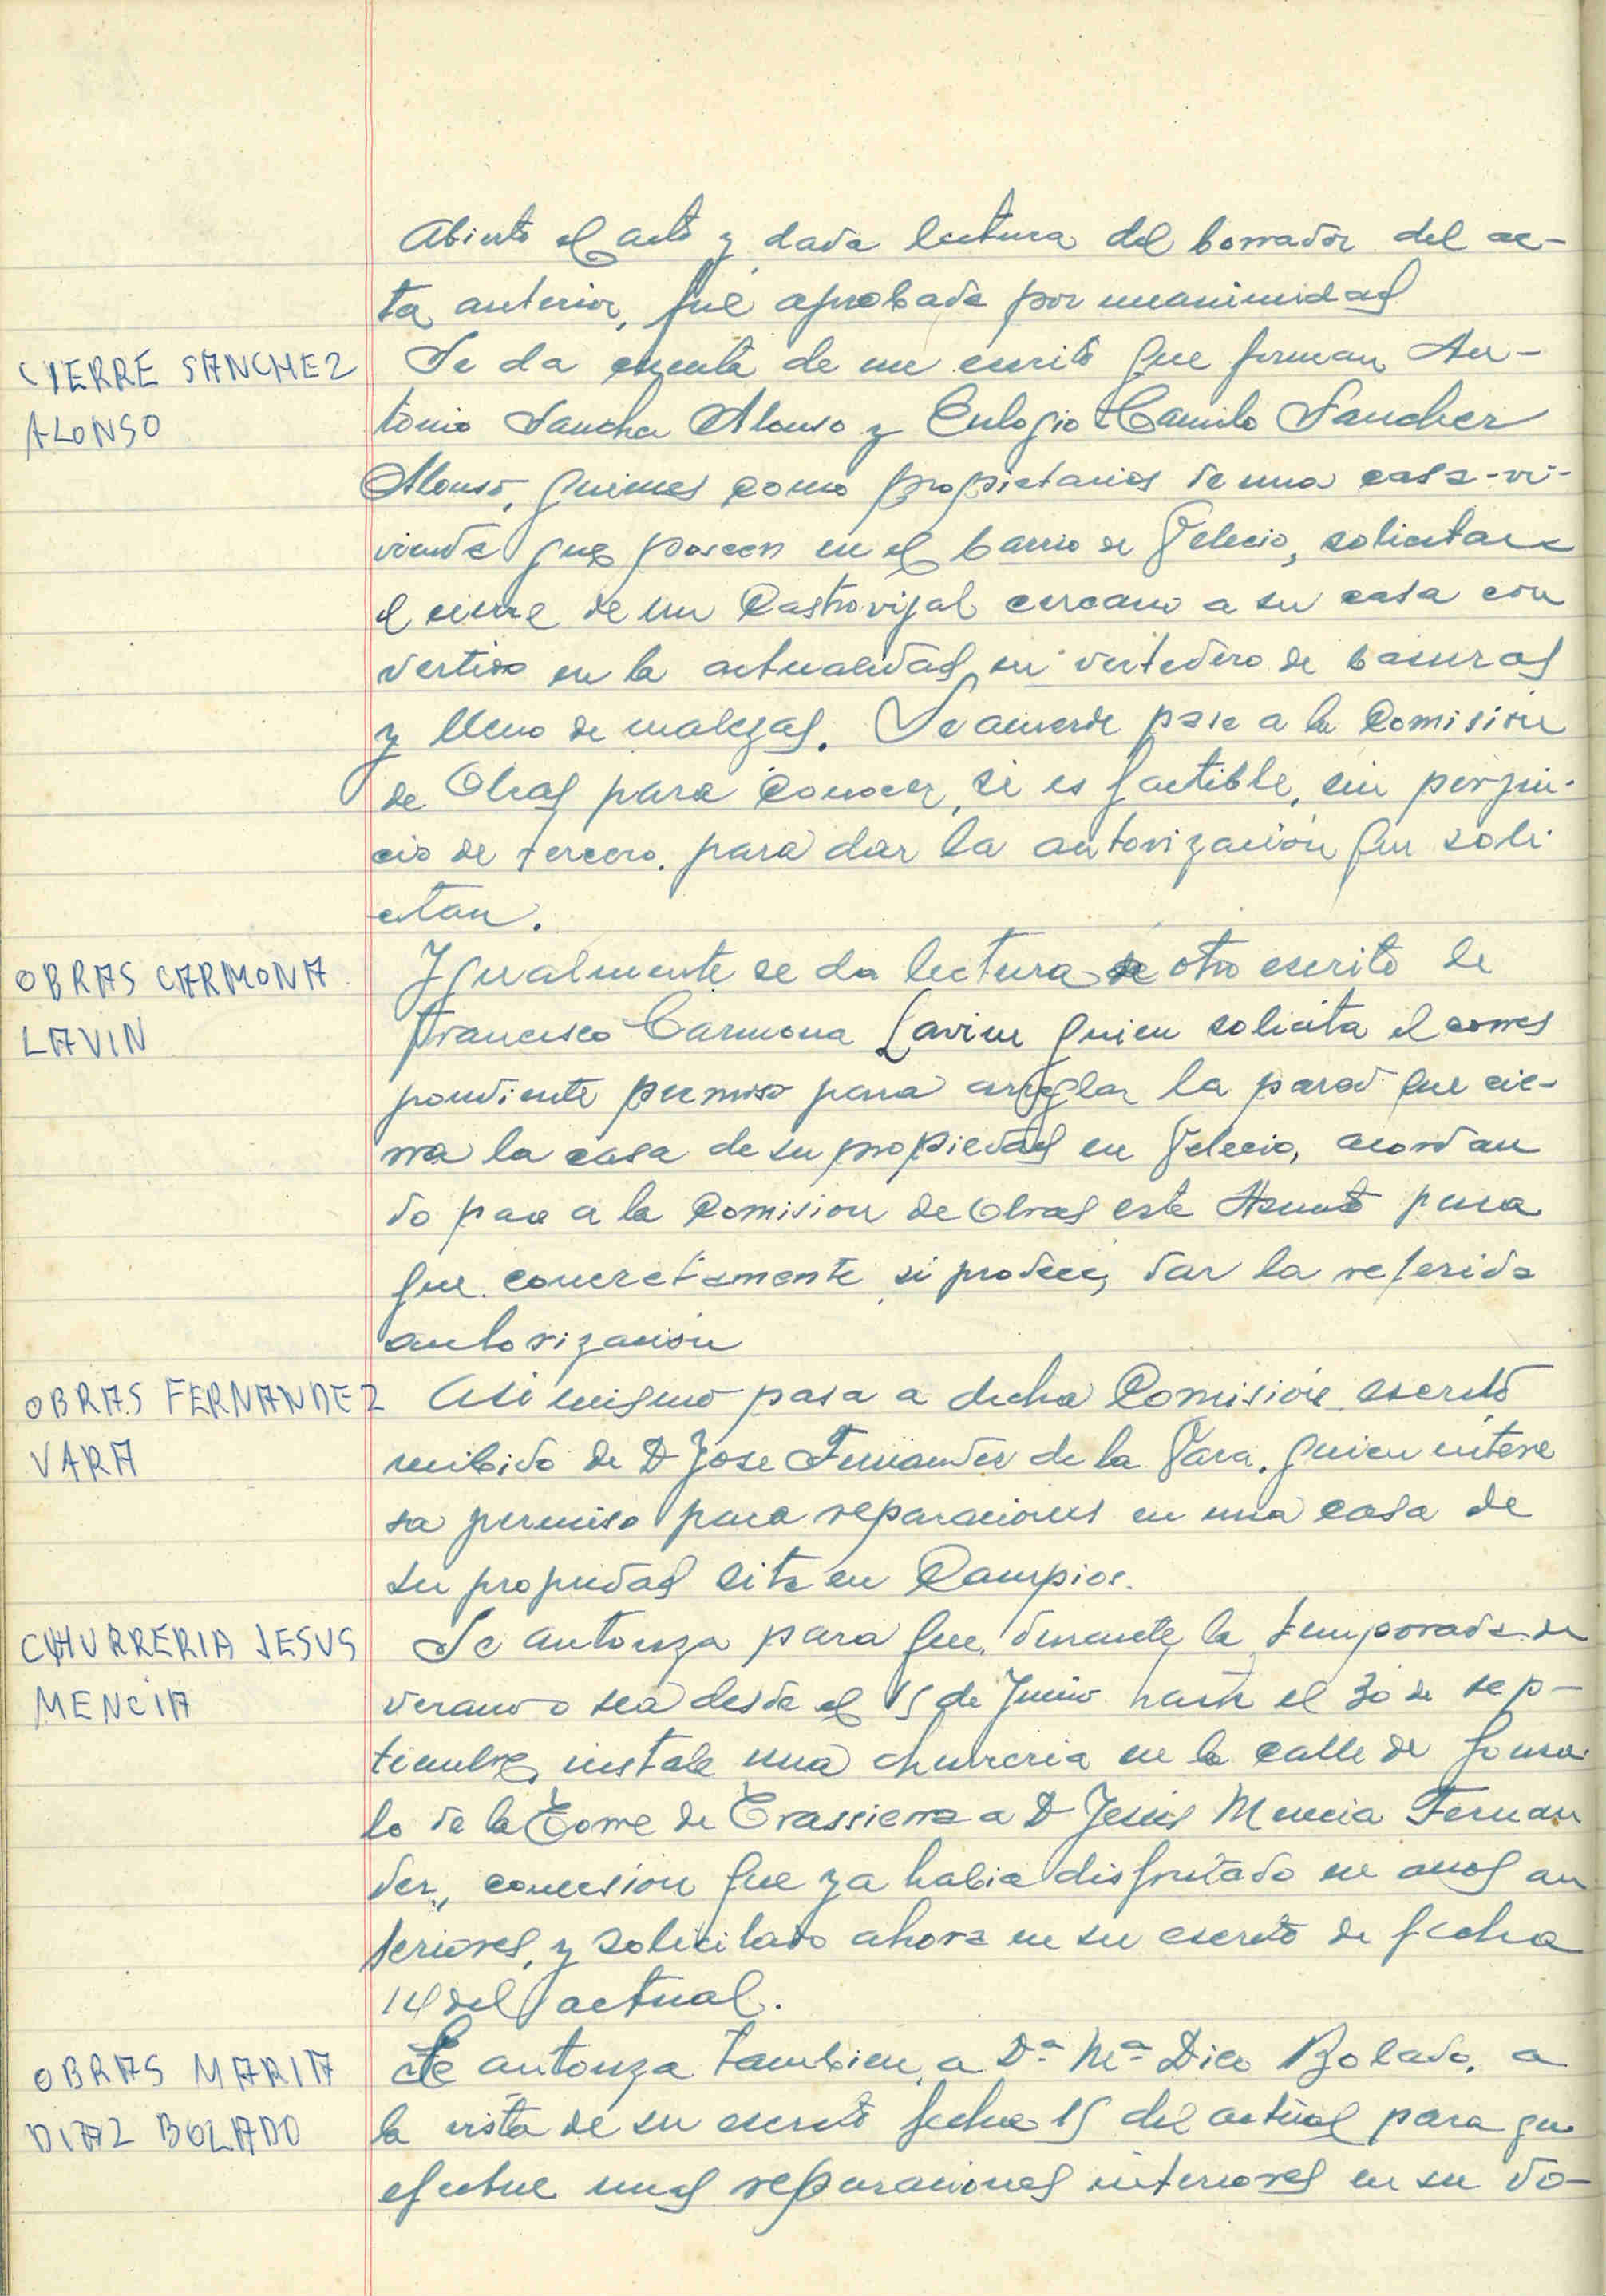 Abierto el acto y dada lectura del borrador del ac-
ta anterior, fué aprobada por unanimidad
CIERRE SANCHEZ
ALONSO
Se da cuenta de un escrito que forman An-
tonio Sanchez Alonso y Eulogio Camilo Sanchez
Alonso, quienes como propietarios de una casa-vi-
vienda que poseen en el barrio de Velecio, solicitan
el cierre de un Castrovijal cercano a su casa con
vertido en la actualidad en vertedero de basuras
y lleno de malezas. Se acuerda pase a la Comisión
de Obras para conocer, si es factible, sin perjui-
cio de tercero. para dar la autorización que soli
citan.
OBRAS CARMONA
LAVIN
Igualmente se da lectura de otro escrito de
Francisco Carmona Lavin quien solicita el corres
pondiente permiso para arreglar la pared que cie-
rra la casa de su propiedad en Velecio, acordan
do pase a la Comision de Obras este Asunto para
que concretamente si procede, dar la referida
autorización
OBRAS FERNANDEZ
VARA
Asi mismo pasa a dicha Comisión escrito
recibido de D Jose Fernandez de la Vara. quien intere
sa permiso para reparaciones en una casa de
su propiedad sita en Campios.
CHURRERIA JESUS
MENCIA
Se autoriza para que durante la temporada de
verano o sea desde el 15 de Junio hasta el 30 de sep-
tiembre, instale una churreria en la calle de Gonza
lo de la Torre de Trassierra a D Jesús Mencia Fernan
dez, concesion que ya habia disfrutado en anos an
teriores, y solicitado ahora en su escrito de fecha
14 del actual.
OBRAS MARIA
DIAZ BOLADO
Se autoriza tambien, a Dª Mª Diez Bolado, a
la vista de su escrito fecha 15 del actual para que
efectue unas reparaciones interiores en su do-